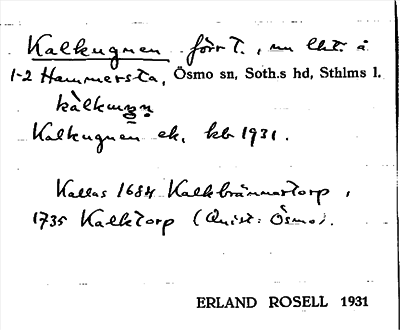 Kalkugnen förr t., nu lht. å
1-2 Hammersta, Ösmo sn, Soth.s hd, Sthlms l.
kàlkuŋn
Kalkugnen ek. kb 1931.
Kallas 1684 Kalkbrännartorp,
1735 Kalktorp (Quist: Ösmo).
ERLAND ROSELL 1931